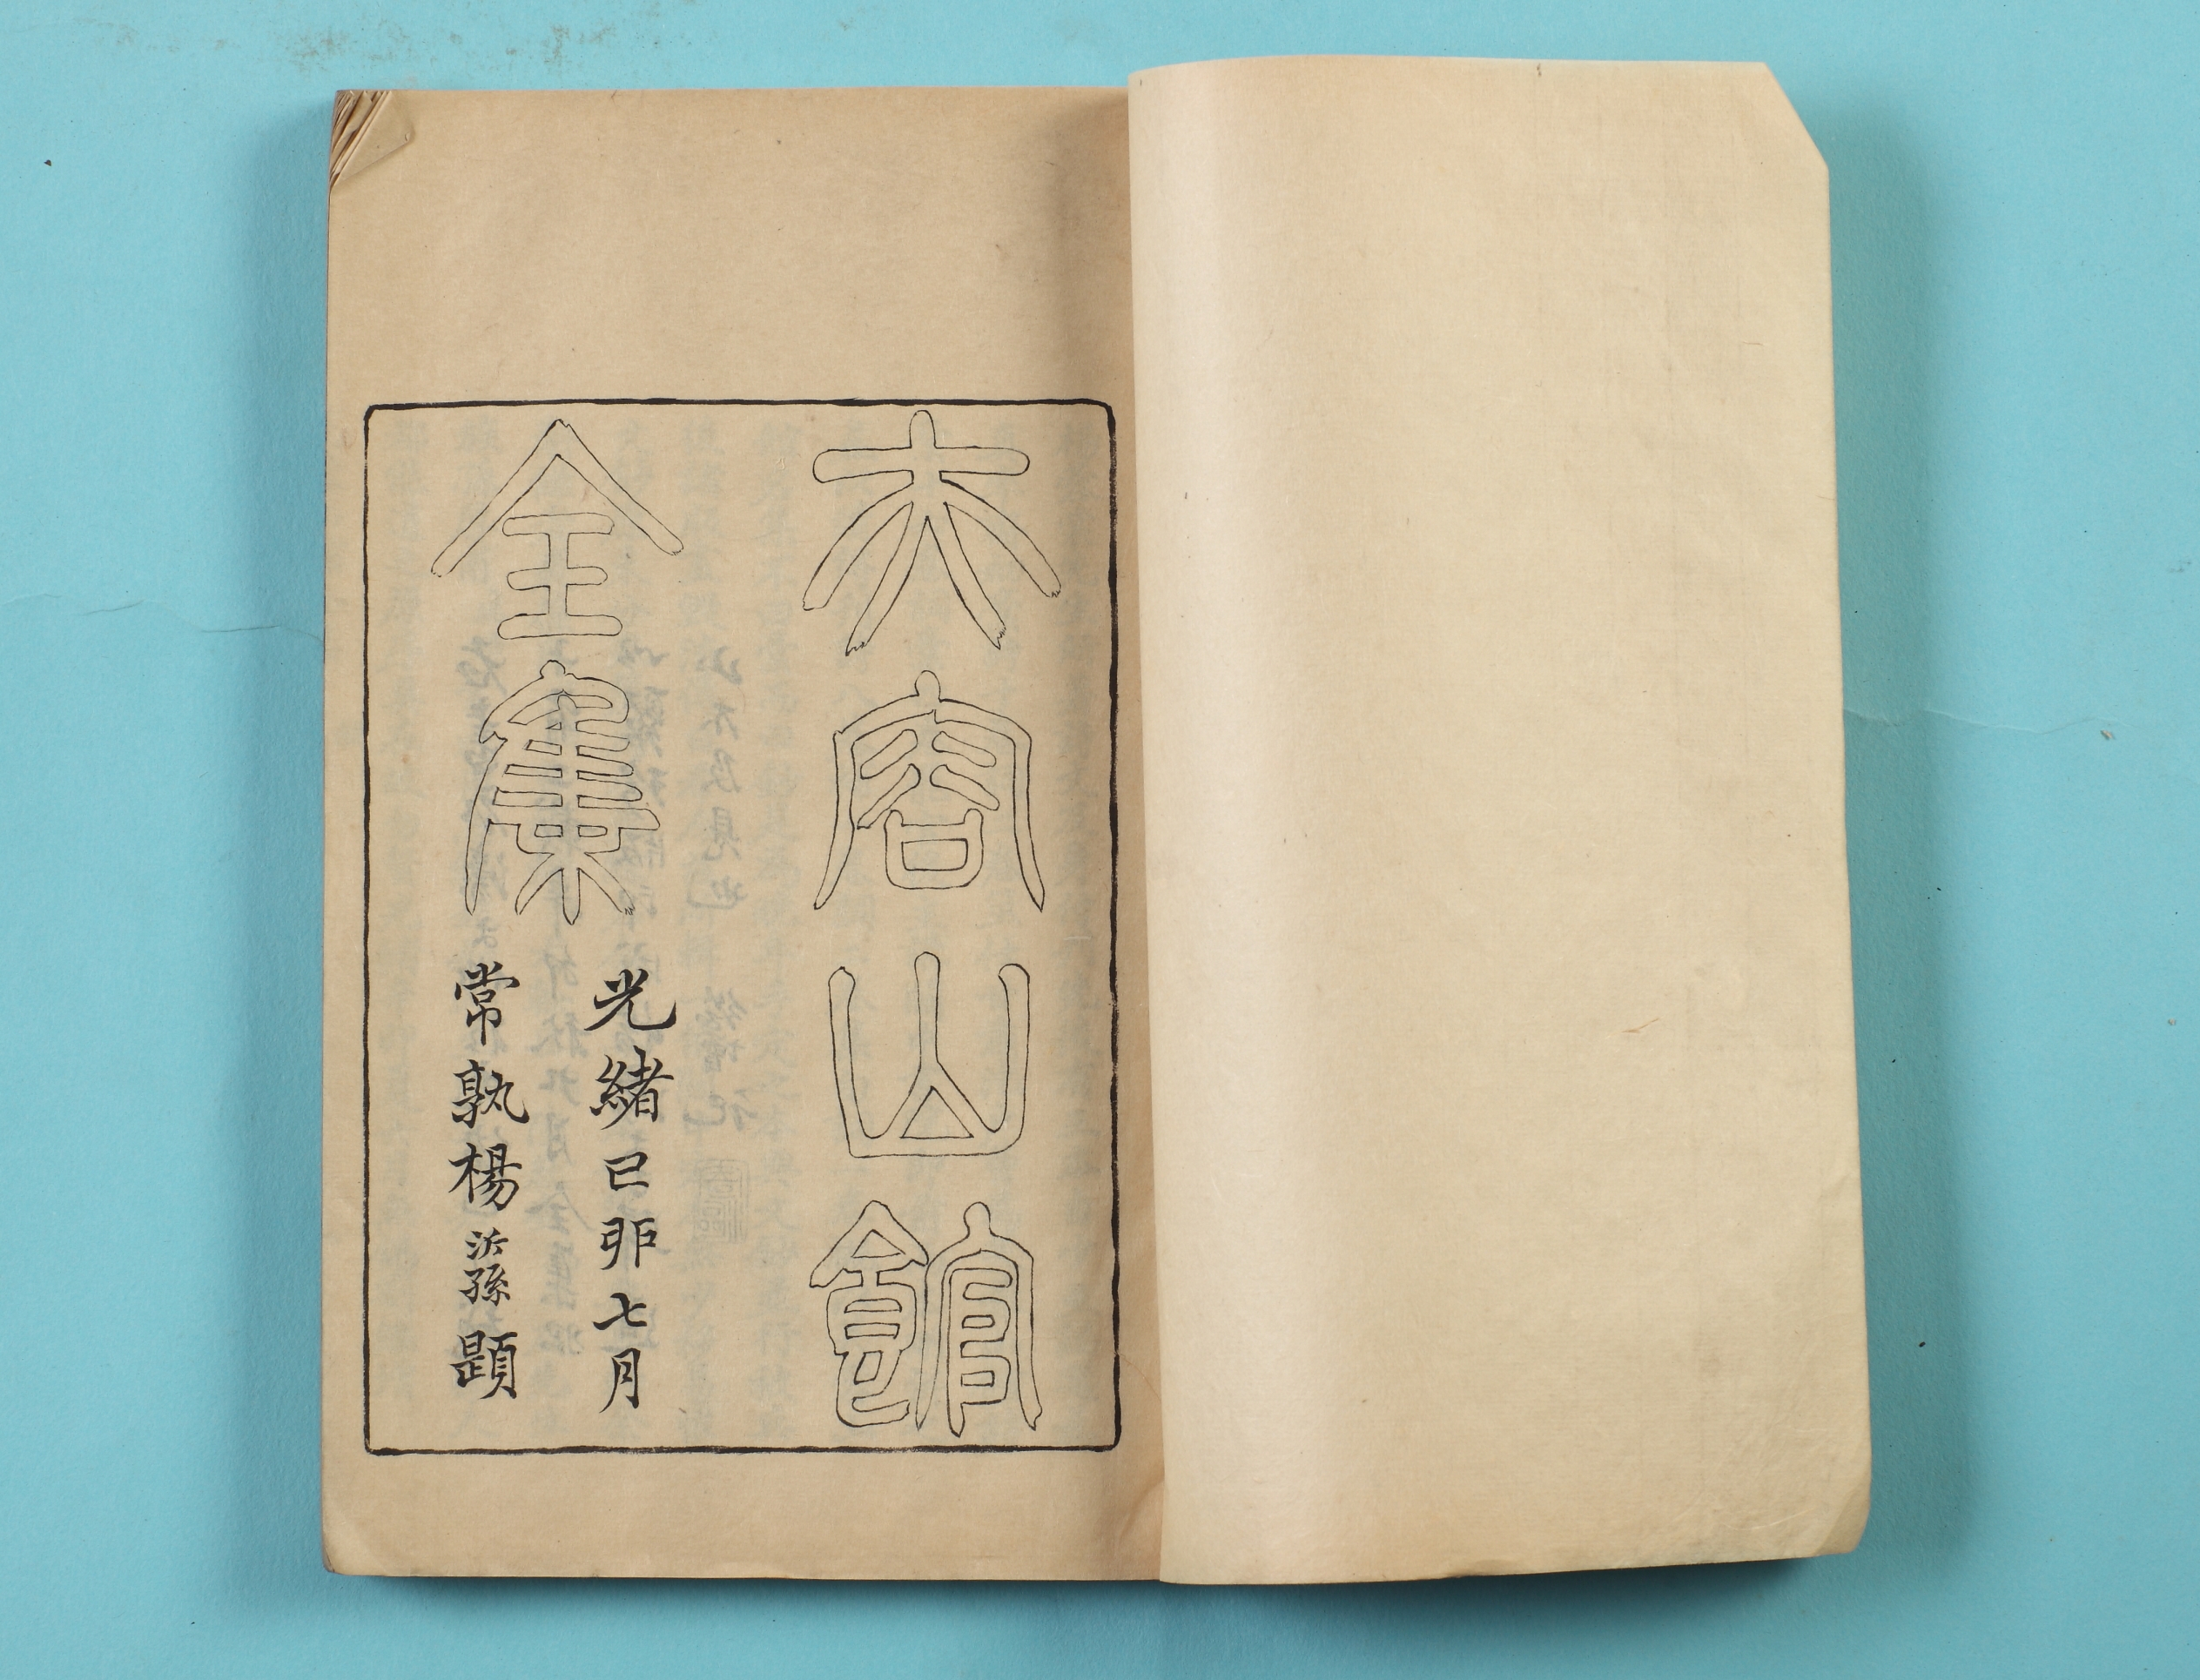 夫容山館
全集
光緒己卯七月
常孰楊沂孫題